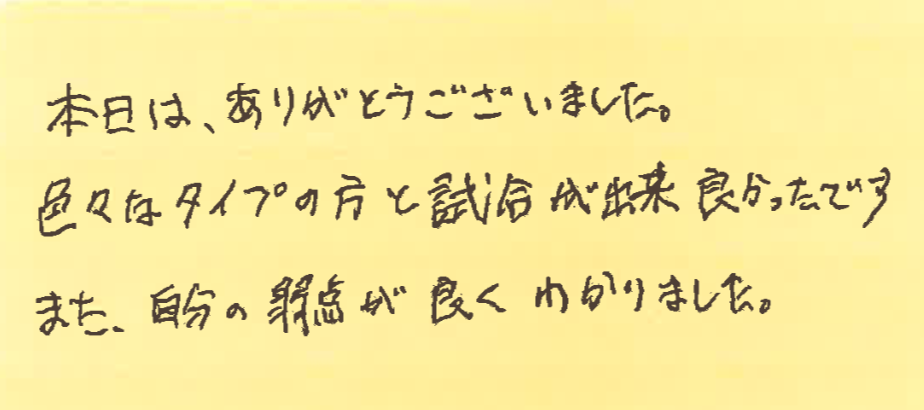 本日は、ありがとうございました。
色々なタイプの方と試合が出来良かったです
また、自分の弱点が良くわかりました。